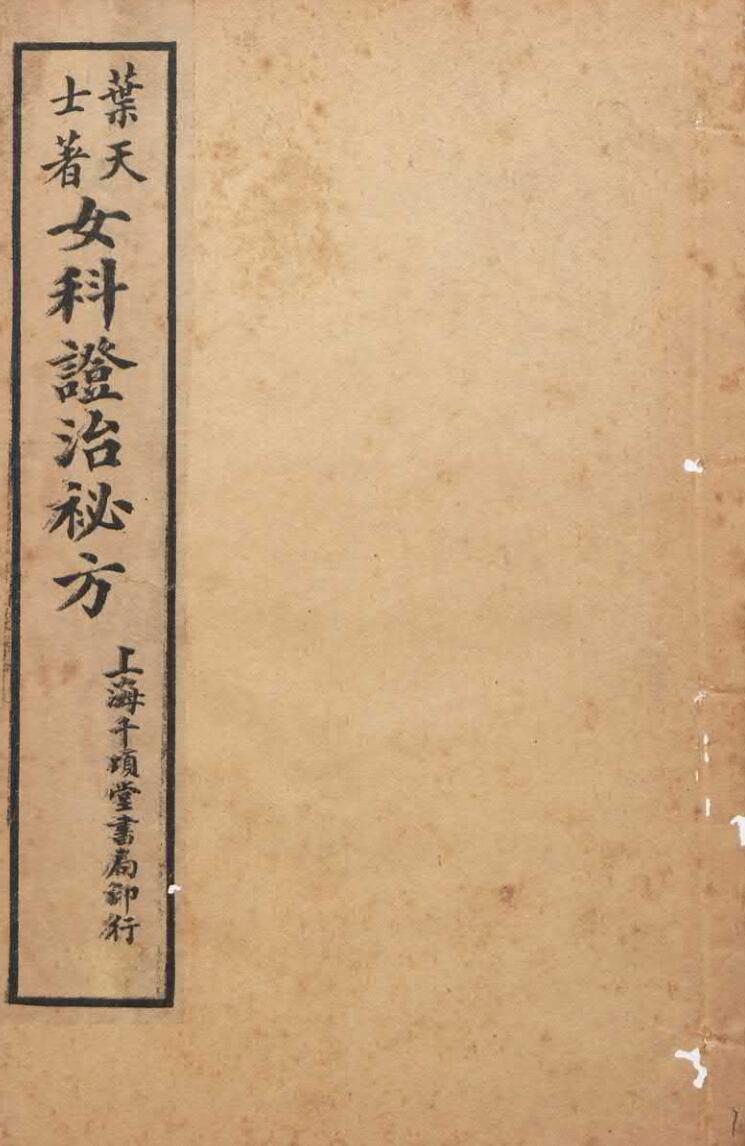 葉天
士著
女科證治秘方
上海千頃堂書局印行